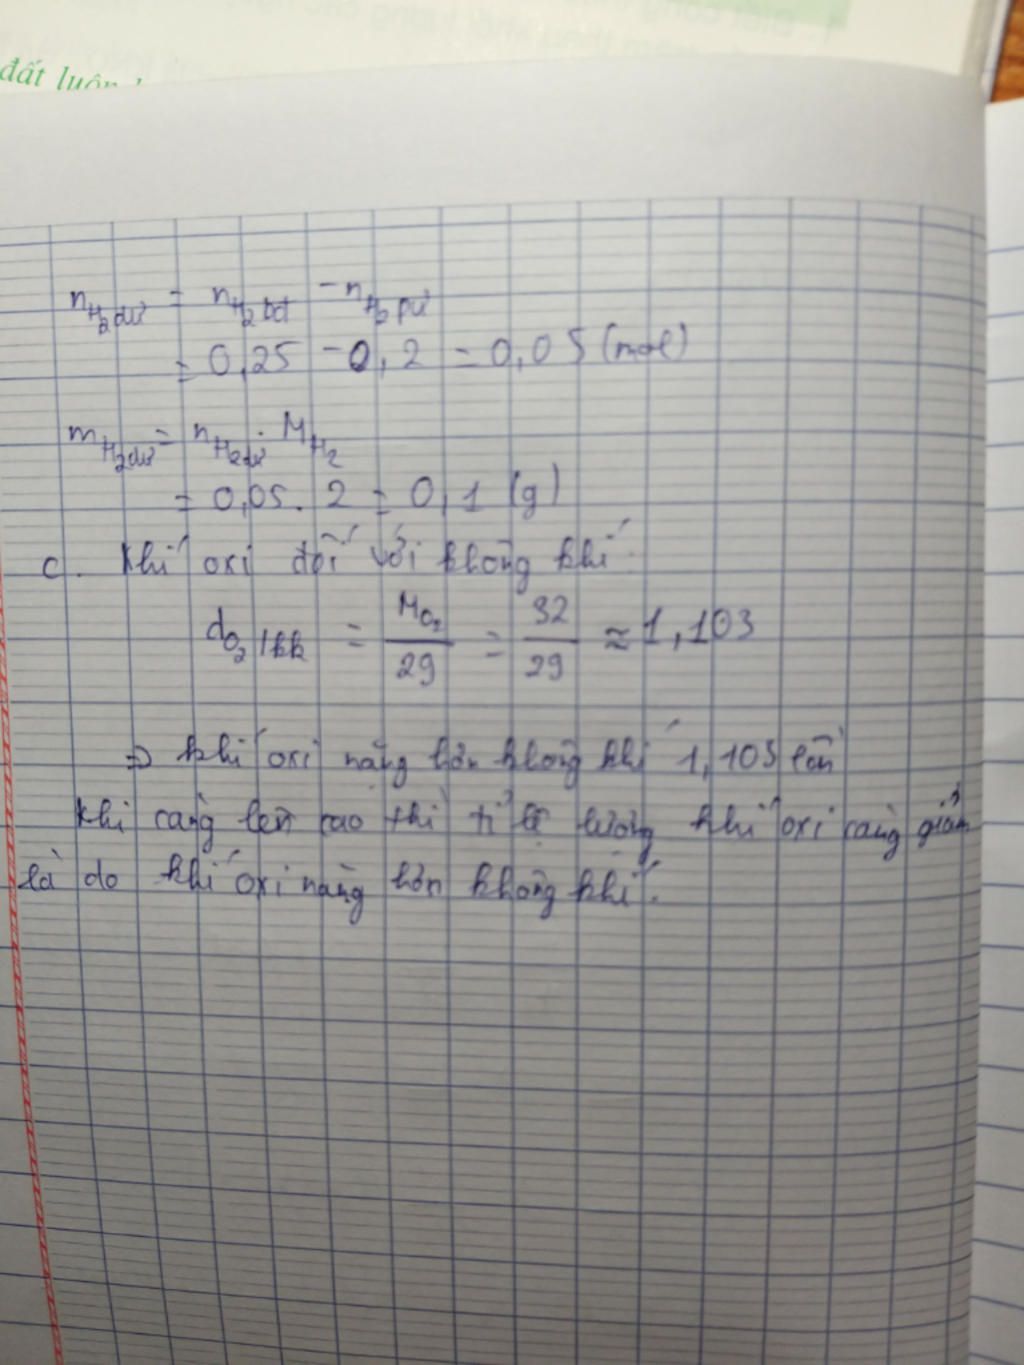 đất luôn
n_{H_2 dư} = n_{H_2 bđ} - n_{H_2 pư}
= 0,25 - 0,2 = 0,05 (mol)
m_{H_2 dư} = n_{H_2 dư} . M_{H_2}
= 0,05 . 2 = 0,1 (g)
c. Khí oxi đối với không khí:
d_{O_2/kk} = \frac{M_{O_2}}{29} = \frac{32}{29} ≈ 1,103
=> khí oxi nặng hơn không khí 1,103 lần
Khi càng lên cao thì tỉ lệ lượng khí oxi càng giảm
là do khí oxi nặng hơn không khí.